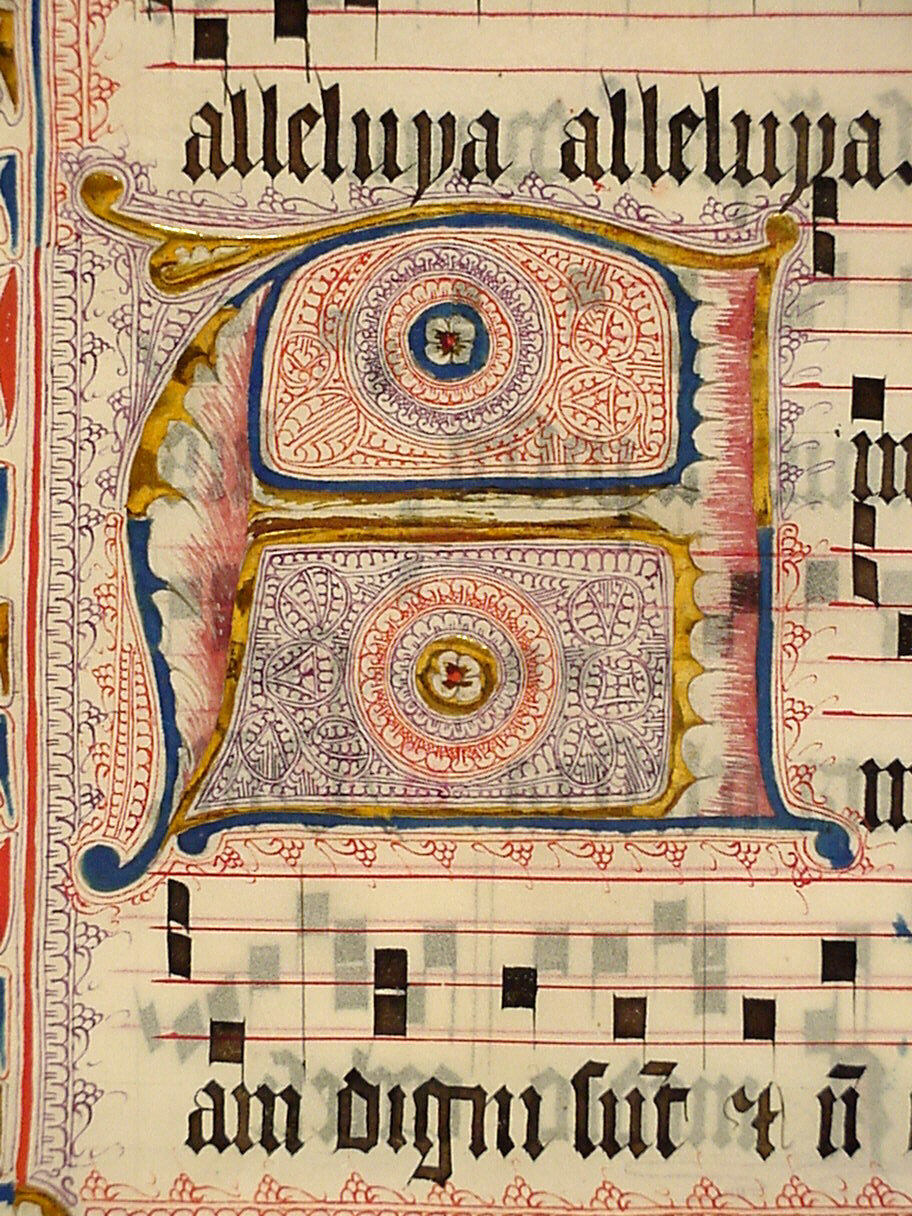 alleluya alleluya.
A
am digni sūt et n̄